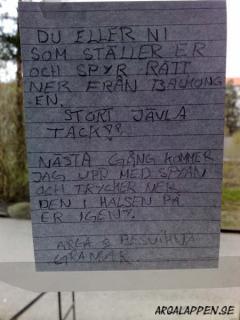 DU ELLER NI
SOM STÄLLER ER
OCH SPYR RATT
NER FRÅN BALKONG
EN.
STORT JÄVLA
TACK??
NÄSTA GÅNG KOMMER
JAG UPP MED SPYAN
OCH TRYCKER NER
DEN I HALSEN PÅ
ER IGEN!
ARGA & BESVIKNA
GRANNAR
ARGALAPPEN.SE